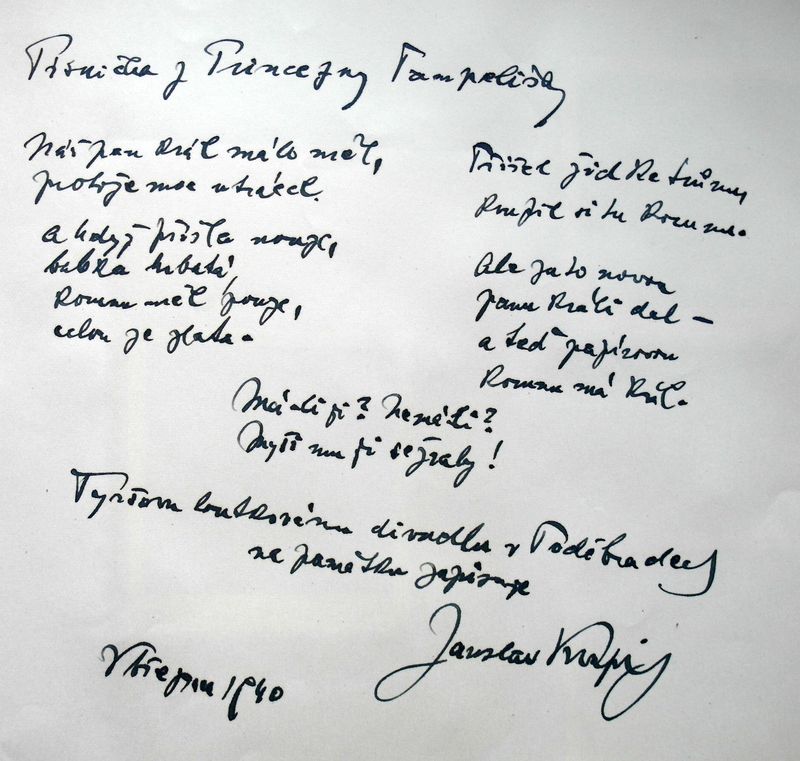 Písnička z Princezny Pampelišky
Náš pan král málo měl,
protože moc utrácel.
A když přišla nouze,
babka hrbatá,
korunu měl pouze,
celou ze zlata.
Přišel žid ke trůnu
koupil si tu korunu.
Ale za to novou
panu králi dal –
a teď papírovou
korunu má král.
Má-li ji? Nemá-li?
Myši mu ji sežraly!
Tyršovu loutkovému divadlu v Poděbradech
na památku zapisuje
Jaroslav Kvapil
V březnu 1940